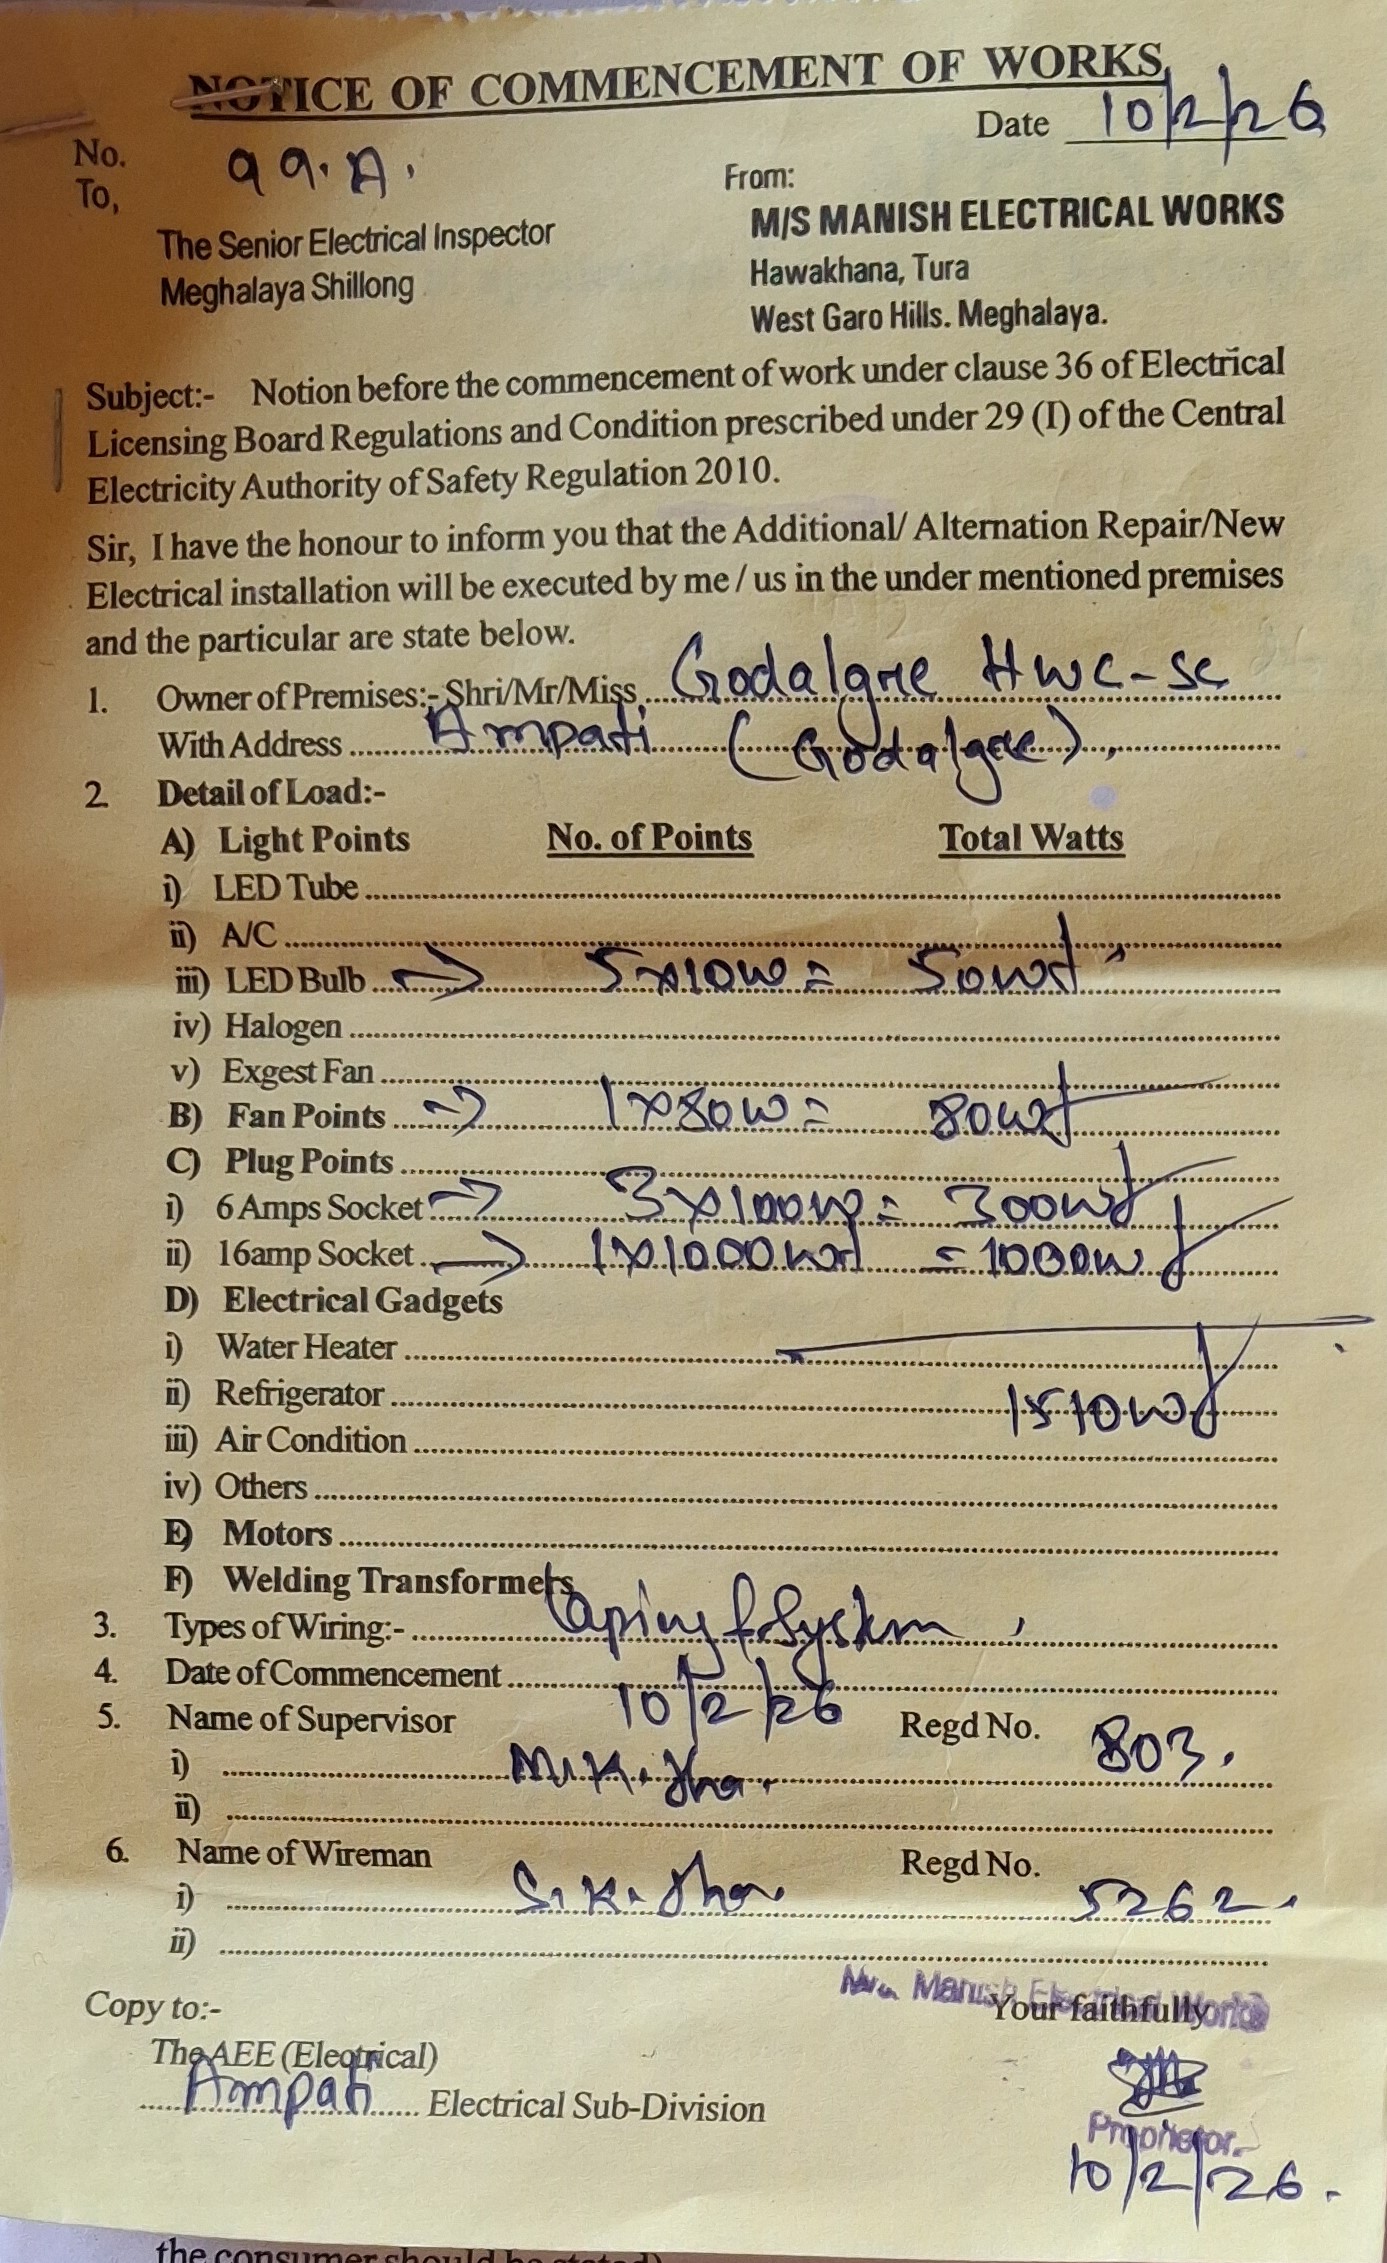 NOTICE OF COMMENCEMENT OF WORKS
Date 10/2/26
No. 99.A.
To,
The Senior Electrical Inspector
Meghalaya Shillong
From:
M/S MANISH ELECTRICAL WORKS
Hawakhana, Tura
West Garo Hills. Meghalaya.
Subject:- Notion before the commencement of work under clause 36 of Electrical
Licensing Board Regulations and Condition prescribed under 29 (I) of the Central
Electricity Authority of Safety Regulation 2010.
Sir, I have the honour to inform you that the Additional/ Alternation Repair/New
Electrical installation will be executed by me / us in the under mentioned premises
and the particular are state below.
1. Owner of Premises:- Shri/Mr/Miss Godalgre HWC-SC
With Address Ampati (Godalgre).
2. Detail of Load:-
A) Light Points No. of Points Total Watts
i) LED Tube
ii) A/C
iii) LED Bulb → 5x10w = 50wt
iv) Halogen
v) Exgest Fan
B) Fan Points → 1x80w = 80wt
C) Plug Points
i) 6 Amps Socket → 3x100w = 300wt
ii) 16amp Socket → 1x1000wt = 1000wt
D) Electrical Gadgets
i) Water Heater
ii) Refrigerator
iii) Air Condition
iv) Others
E) Motors
F) Welding Transformers
3. Types of Wiring:- System
4. Date of Commencement 10/2/26
5. Name of Supervisor Regd No. 803.
i) M.K. Jha.
ii)
6. Name of Wireman Regd No.
i) S.K. Jha. 5262.
ii)
M/s. Manish Electrical Works
Copy to:- Your faithfully
The AEE (Electrical)
Ampati Electrical Sub-Division
Proprietor.
10/2/26.
the consumer should be stated)